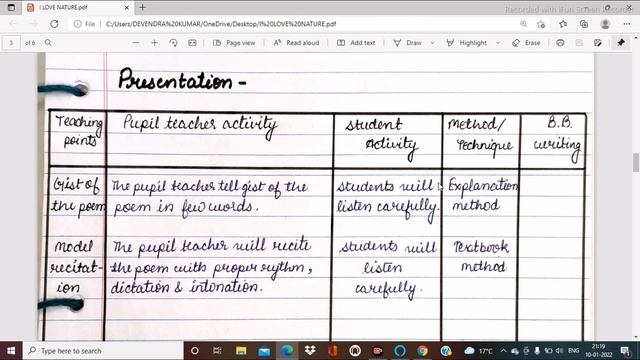 Recorded with iFun Screen Recorder
I LOVE NATURE.pdf
File
C:/Users/DEVENDRA%20KUMAR/OneDrive/Desktop/I%20LOVE%20NATURE.pdf
3 of 6
Page view
Read aloud
Add text
Draw
Highlight
Erase
Presentation -
Teaching points
Pupil teacher activity
Student Activity
Method/ Technique
B.B. writing
Gist of the poem
The pupil teacher tell gist of the
poem in few words.
Students will
listen carefully.
Explanation
method
Model
recitat-
ion
The pupil teacher will recite
the poem with proper rythm,
dictation & intonation.
Students will
listen
carefully.
Textbook
method
Type here to search
17°C
ENG
21:19
10-01-2022